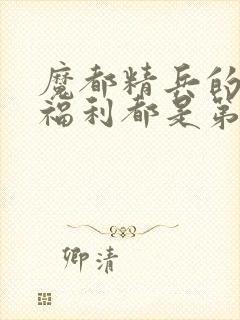 魔都精兵的
福利都是第
卿清